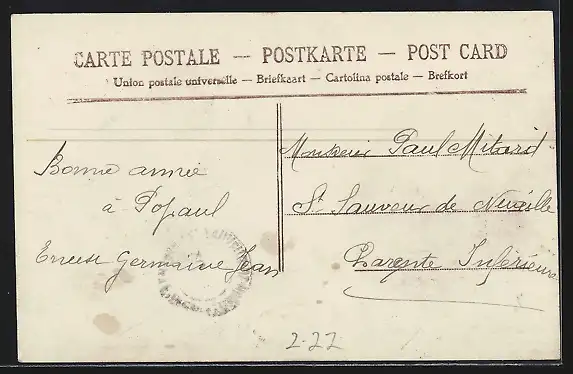 CARTE POSTALE — POSTKARTE — POST CARD
Union postale universelle — Briefkaart — Cartolina postale — Brefkort
Bonne année
à Popaul
Ernest Germaine Jean
Monsieur Paul Mitard
St Sauveur de Nuaillé
Charente Inférieure
2-22